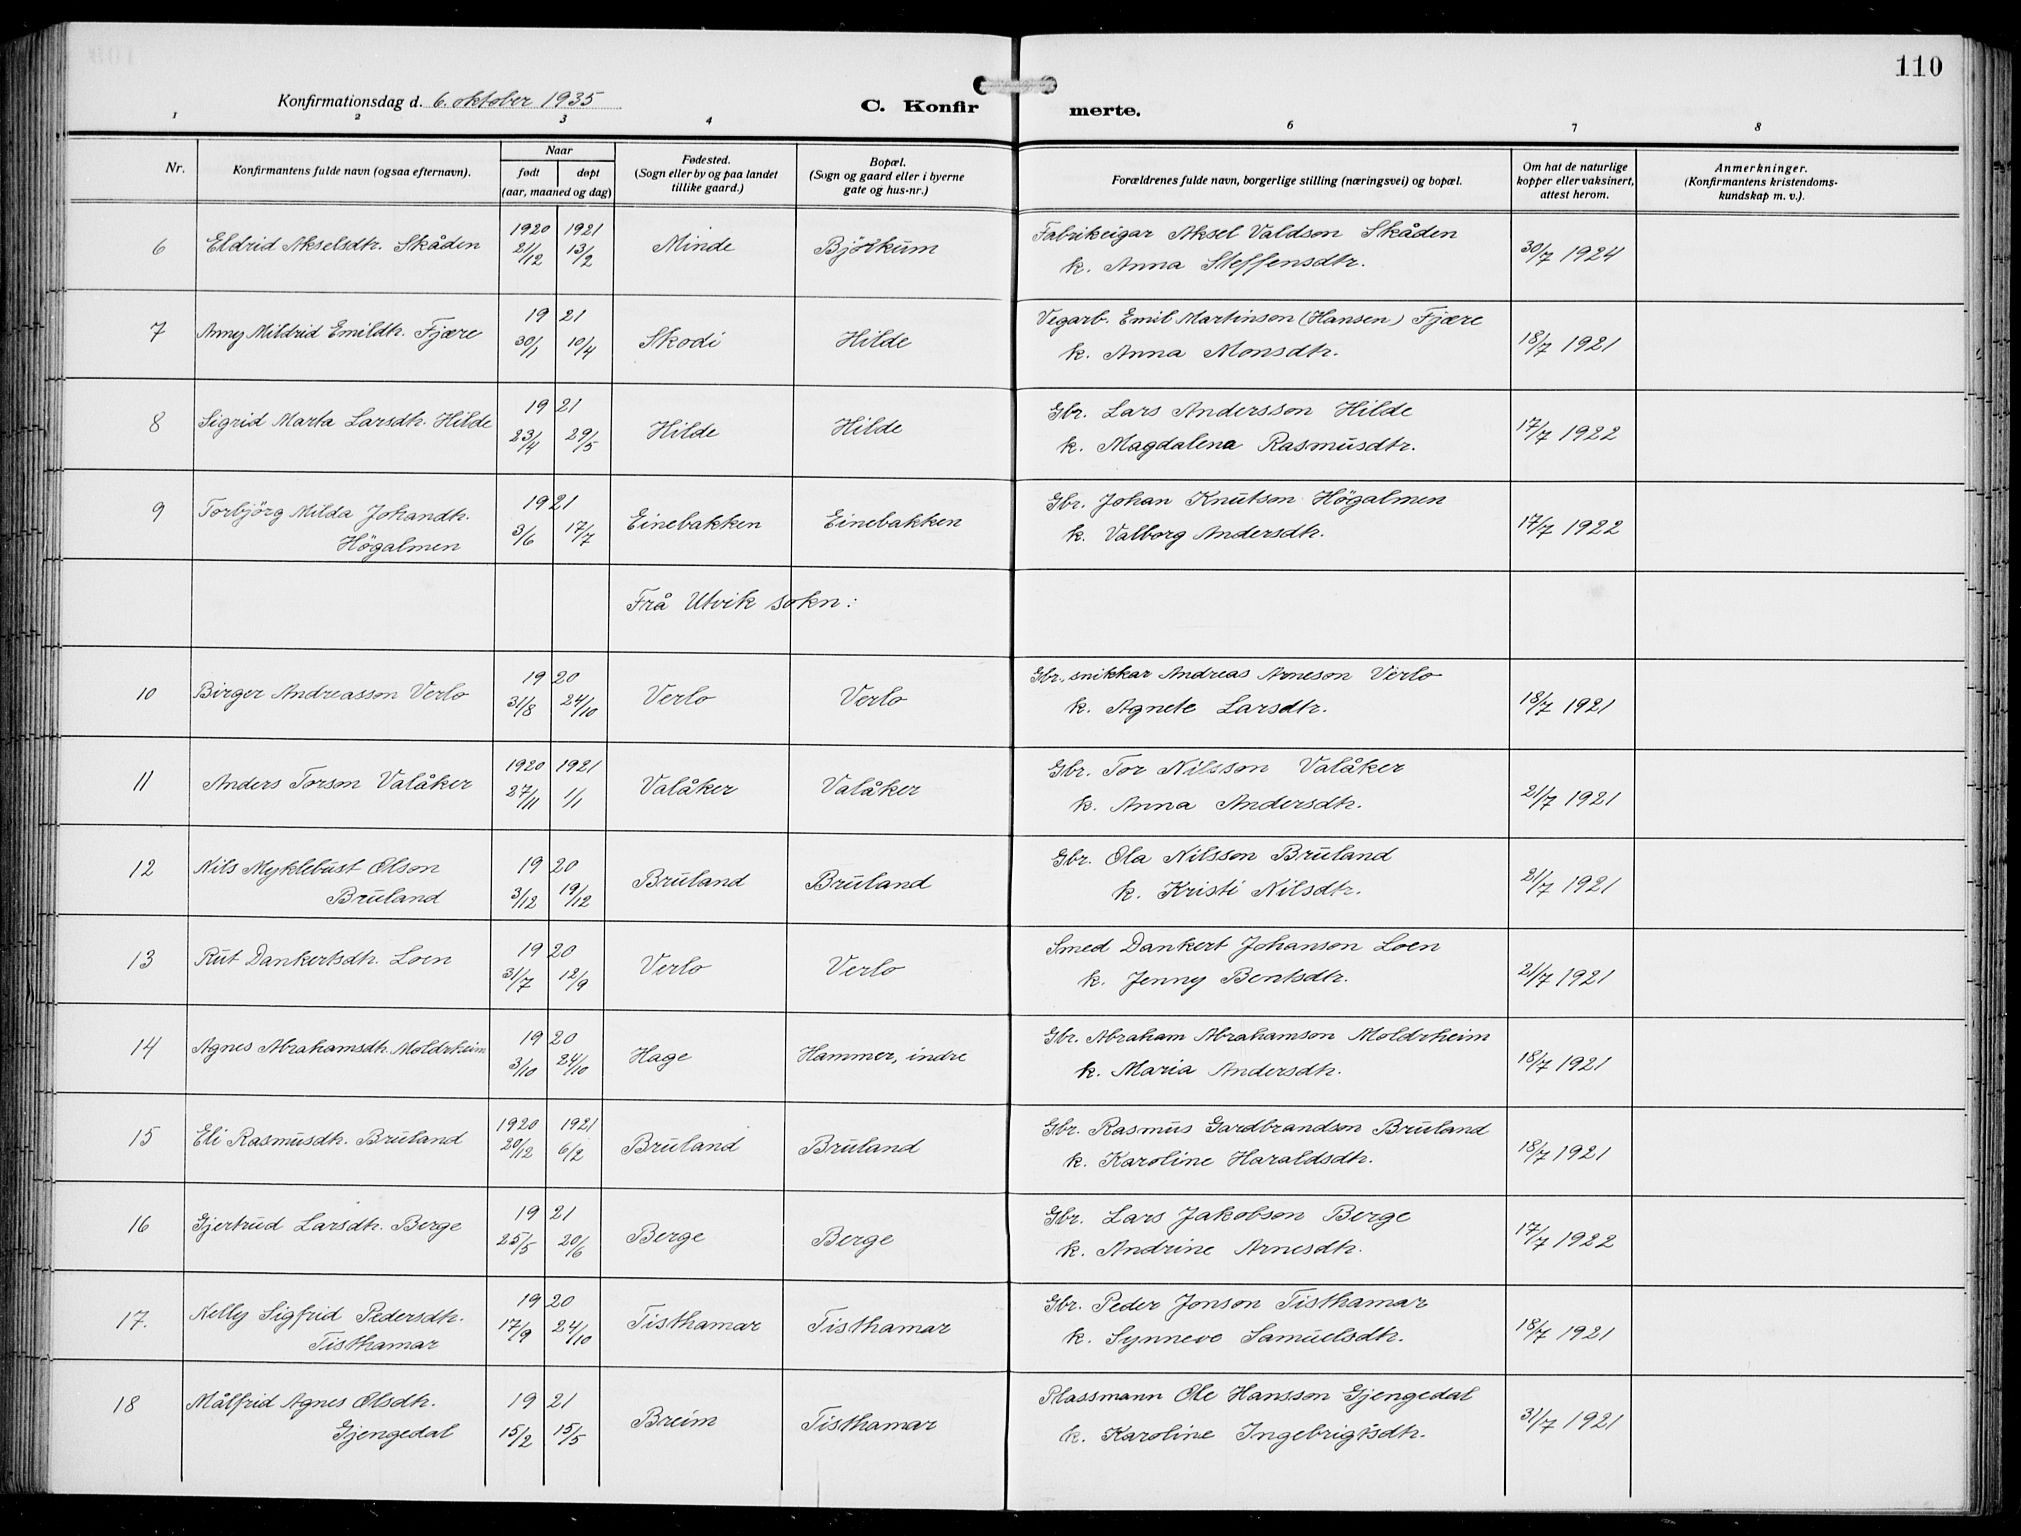 110
Konfirmationsdag d. 6. oktober 1935
C. Konfirmerte.
1 2 3 4 6 7 8
Nr.
Konfirmantens fulde navn (ogsaa efternavn).
Naar
født døpt
(aar, maaned og dag)
Fødested.
(Sogn eller by og paa landet
tillike gaard.)
Bopæl.
(Sogn og gaard eller i byerne
gate og hus-nr.)
Forældrenes fulde navn, borgerlige stilling (næringsvei) og bopæl.
Om hat de naturlige
kopper eller vaksinert,
attest herom.
Anmerkninger.
(Konfirmantens kristendoms-
kundskap m. v.).
1920 1921 Fabrikeigar Aksel Valdson Skåden
6 Eldrid Akselsdtr. Skåden 21/12 13/2 Minde Bjørkum 30/7 1924
k. Anna Steffensdtr.
19 21 Vegarb. Emil Martinson (Hansen) Fjære
7 Anny Mildrid Emildtr. Fjære 30/1 10/4 Skodi Hilde 18/7 1921
k. Anna Monsdtr.
19 21 Gbr. Lars Andersson Hilde
8 Sigrid Marta Larsdtr. Hilde 23/4 29/5 Hilde Hilde 17/7 1922
k. Magdalena Rasmusdtr.
19 21 Gbr. Johan Knutson Högalmen
9 Torbjörg Milda Johandtr. 3/6 17/7 Einebakken Einebakken 17/7 1922
Högalmen k. Valborg Andersdtr.
Frå Utvik sokn:
19 20 Gbr., snikkar Andreas Arneson Verlo
10 Birger Andreasson Verlo 31/8 24/10 Verlo Verlo 18/7 1921
k. Agnete Larsdtr.
1920 1921 Gbr. Tor Nilsson Valåker
11 Anders Torson Valåker 27/11 1/1 Valåker Valåker 21/7 1921
k. Anna Andersdtr.
19 20 Gbr. Ola Nilsson Bruland
12 Nils Myklebust Olson 3/12 19/12 Bruland Bruland 21/7 1921
Bruland k. Kristi Nilsdtr.
19 20 Smed Dankert Johanson Loen
13 Rut Dankertsdtr. Loen 31/7 12/9 Verlo Verlo 21/7 1921
k. Jenny Bentsdtr.
19 20 Gbr. Abraham Abrahamson Moldrheim
14 Agnes Abrahamsdtr. Moldrheim 3/10 24/10 Hage Hammer, indre 18/7 1921
k. Maria Andersdtr.
1920 1921 Gbr. Rasmus Gardbrandson Bruland
15 Eli Rasmusdtr. Bruland 20/12 6/2 Bruland Bruland 18/7 1921
k. Karoline Haraldsdtr.
19 21 Gbr. Lars Jakobson Berge
16 Gjertrud Larsdtr. Berge 25/5 20/6 Berge Berge 17/7 1922
k. Andrine Arnesdtr.
19 20 Gbr. Peder Jonson Tisthamar
17. Nelly Sigfrid Pedersdtr. 17/9 24/10 Tisthamar Tisthamar 18/7 1921
Tisthamar k. Synneve Samuelsdtr.
19 21 Plassmann Ole Hansson Gjengedal
18 Målfrid Agnes Olsdtr. 15/2 15/5 Breim Tisthamar 31/7 1921
Gjengedal k. Karoline Ingebrigtsdtr.